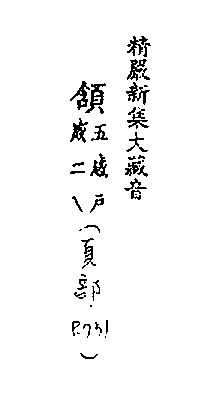 精嚴新集大藏音
五陵戶
二
（頁部
P.731
）